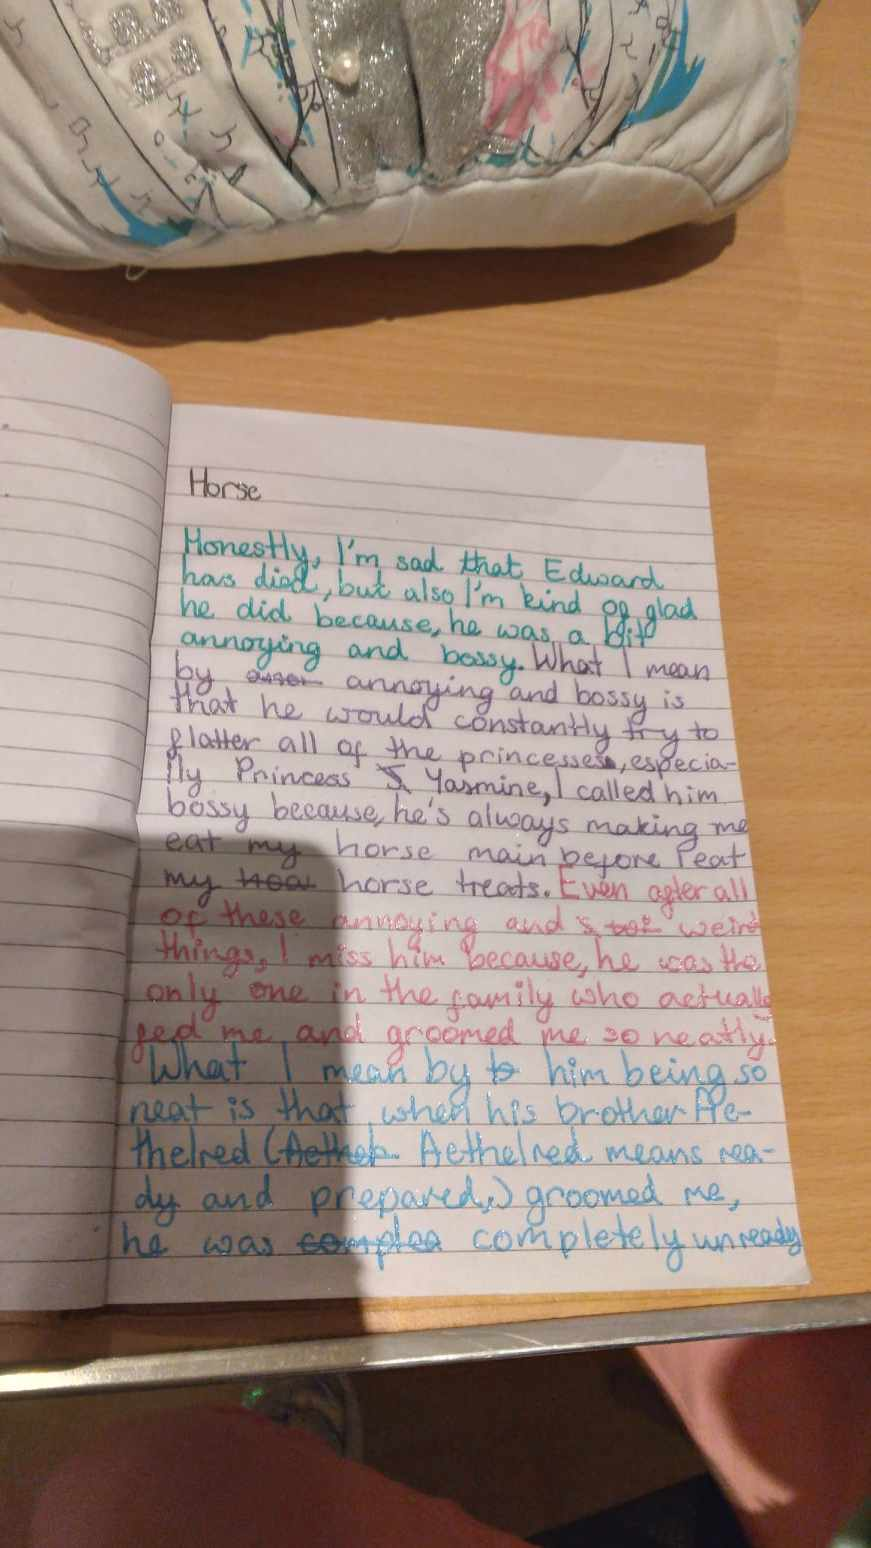 Horse
Honestly, I'm sad that Edward
has died, but also I'm kind of glad
he did because, he was a bit
annoying and bossy. What I mean
by annoying and bossy is
that he would constantly try to
flatter all of the princesses, especia-
lly Princess Yasmine, I called him
bossy because, he's always making me
eat my horse main before I eat
my horse treats. Even after all
of these annoying and weird
things, I miss him because, he was the
only one in the family who actually
fed me and groomed me so neatly.
What I mean by him being so
neat is that when his brother Ae-
thelred (Aethelred means rea-
dy and prepared,) groomed me,
he was completely unready